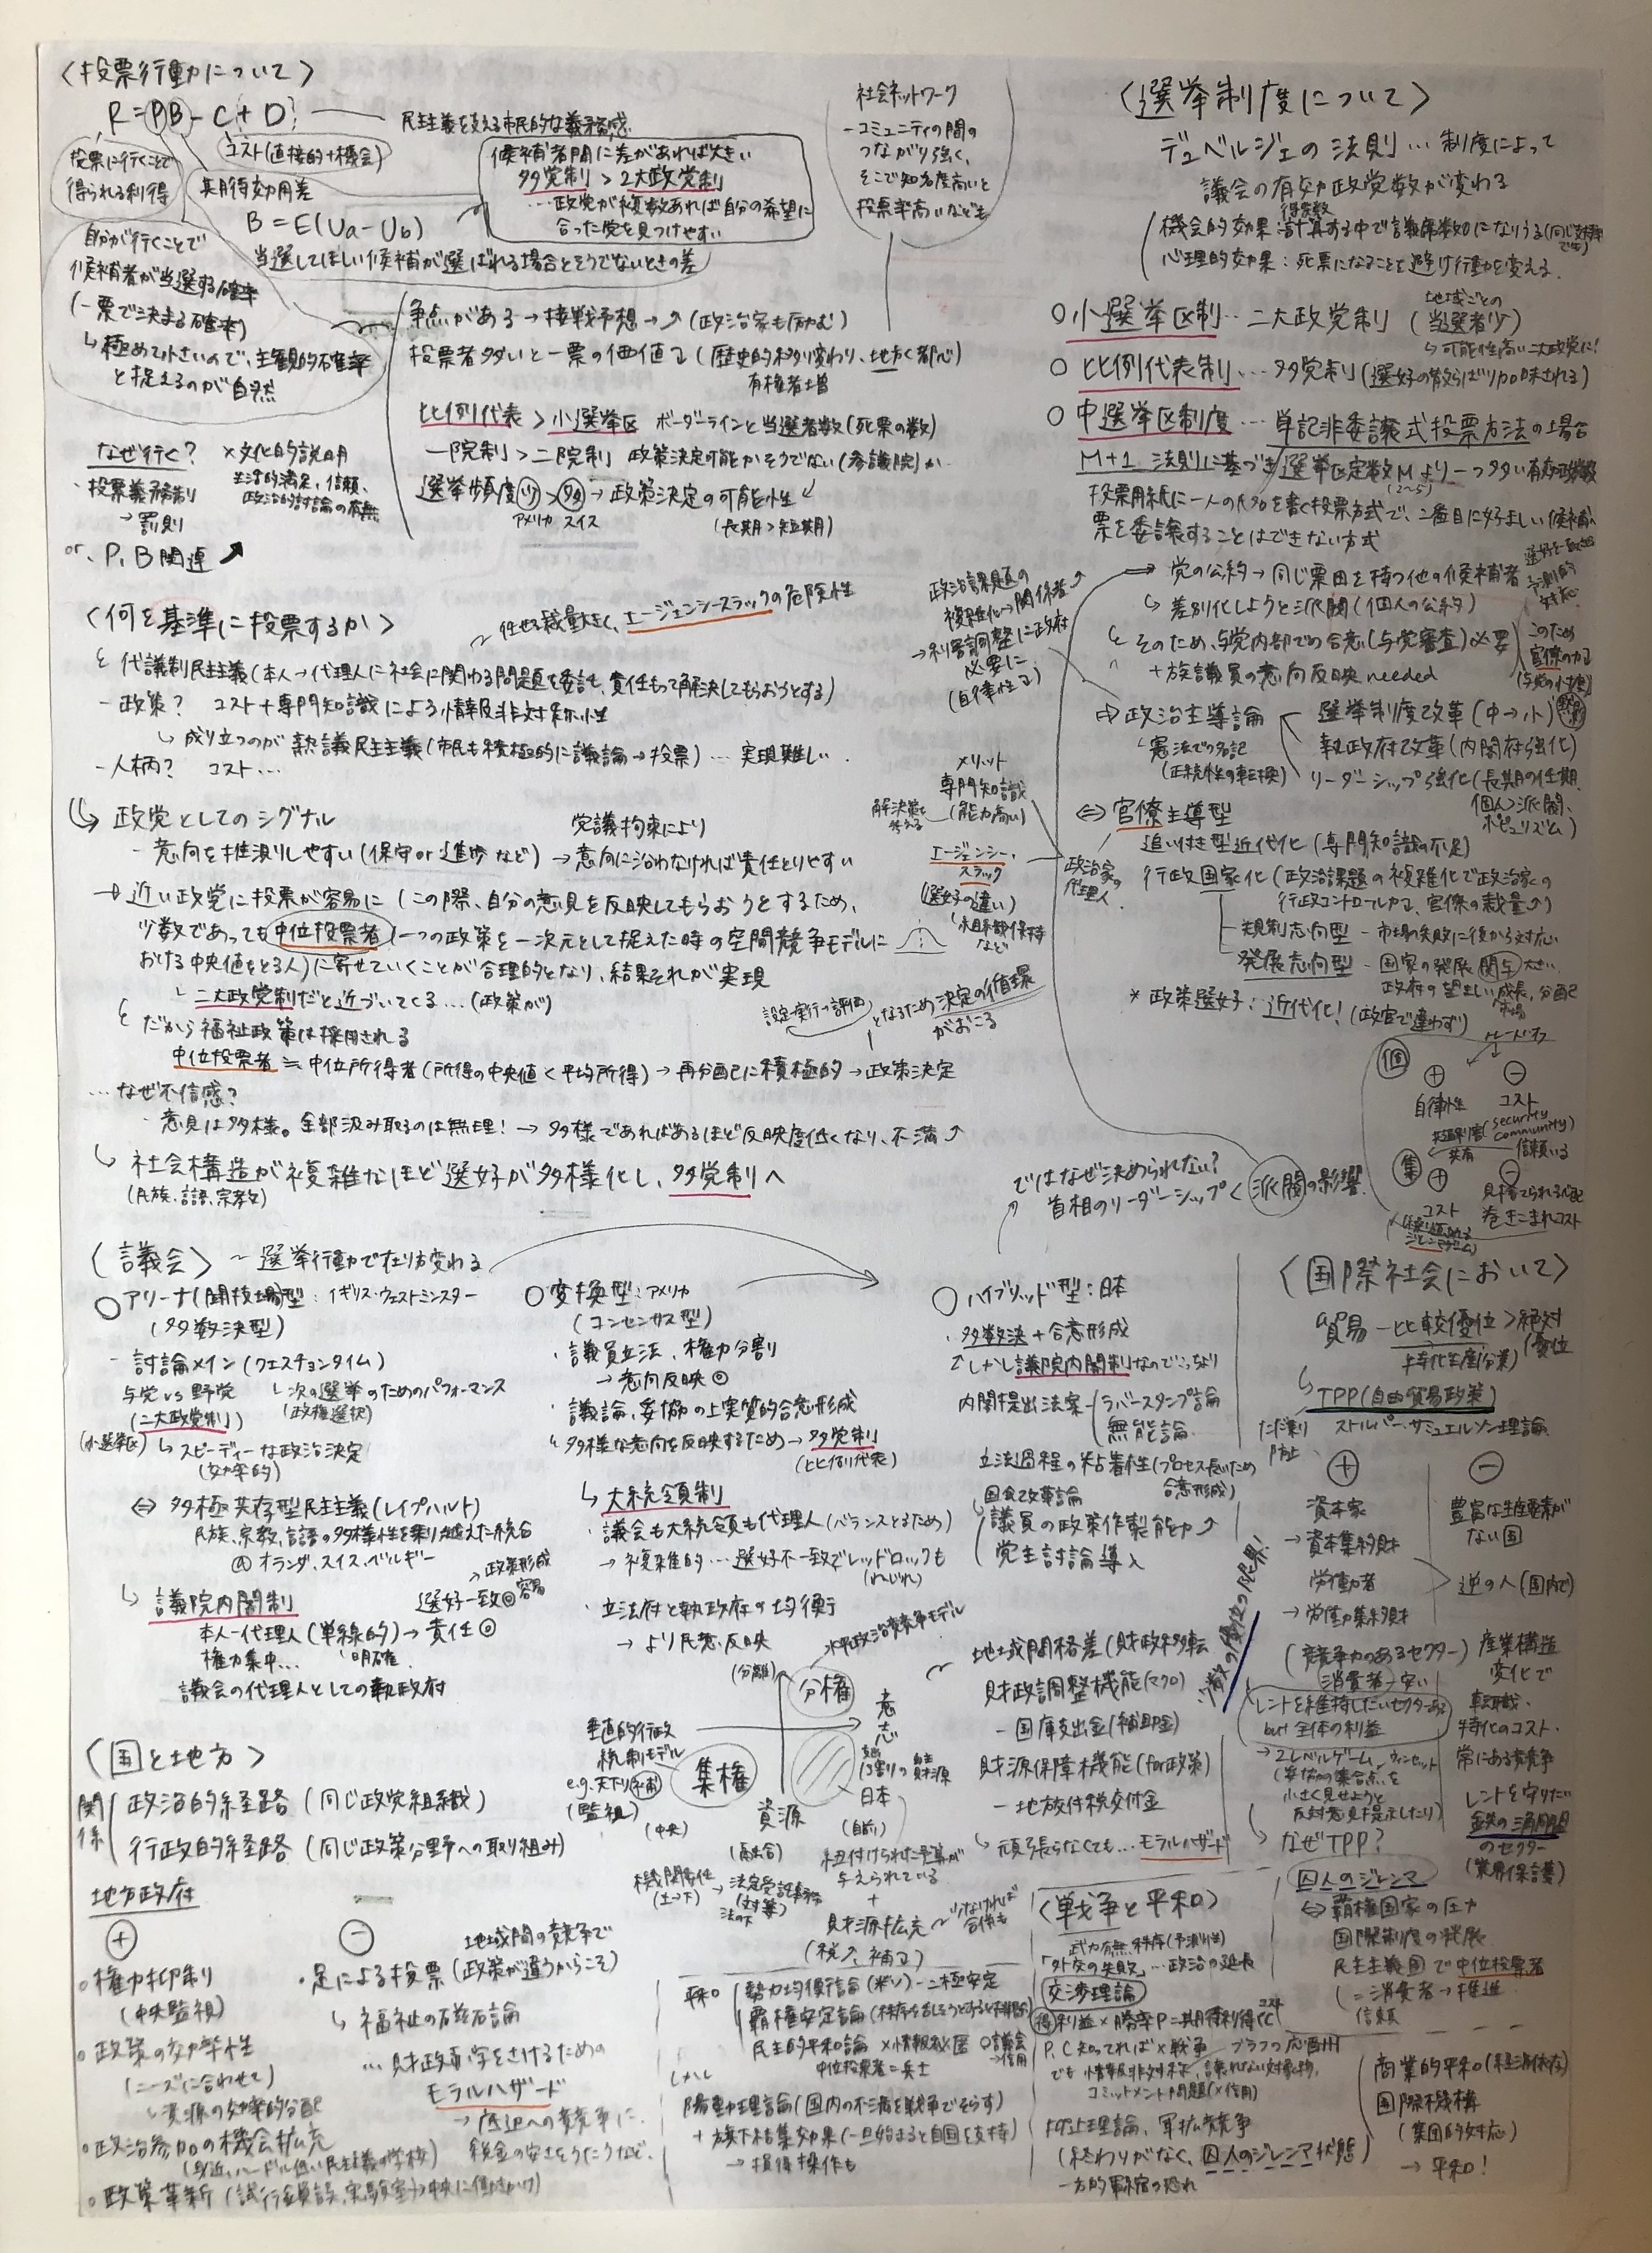 〈投票行動について〉
R=PB-C+D
民主主義を支える市民的な義務感
コスト(直接的+機会)
投票に行くことで
得られる利得
期待効用差
B=E(Ua-Ub)
当選してほしい候補が選ばれる場合とそうでないときの差
候補者間に差があれば大きい
多党制>2大政党制
…政党が複数あれば自分の希望に
合った党を見つけやすい
自分が行くことで
候補者が当選する確率
(一票で決まる確率)
↳極めて小さいので、主観的確率
と捉えるのが自然
社会ネットワーク
-コミュニティの間の
つながり強く、
そこで知名度高いと
投票率高いなども
争点がある→接戦予想→↗(政治家も励む)
投票者多いと一票の価値↓(歴史的移り変わり、地方<都心)
有権者増
比例代表>小選挙区 ボーダーラインと当選者数(死票の数)
一院制>二院制 政策決定可能かそうでない(参議院)か
選挙頻度㋛>㋟→政策決定の可能性
アメリカ スイス
(長期>短期)
なぜ行く?
・投票義務制
→罰則
or、P、B関連↗
×文化的説明
生活的満足、信頼、
政治的討論の有無
〈何を基準に投票するか〉
~任せる裁量大きく、エージェンシースラックの危険性
代議制民主主義(本人→代理人に社会に関わる問題を委託、責任もって解決してもらおうとする)
-政策? コスト+専門知識による情報非対称性
↳成り立つのが熟議民主主義(市民も積極的に議論→投票)…実現難しい
-人柄? コスト…
↳政党としてのシグナル
-意向を推測しやすい(保守or進歩など)→意向に沿わなければ責任とりやすい
党議拘束により
→近い政党に投票が容易に(この際、自分の意見を反映してもらおうとするため、
少数であっても中位投票者(一つの政策を一次元として捉えた時の空間競争モデルに
おける中央値をとる人)に寄せていくことが合理的となり、結果それが実現
↳二大政党制だと近づいてくる…(政策が)
だから福祉政策は採用される
設定→実行→評価となるため決定の循環
がおこる
中位投票者≒中位所得者(所得の中央値<平均所得)→再分配に積極的→政策決定
…なぜ不信感?
・意見は多様。全部汲み取るのは無理!→多様であればあるほど反映度低くなり、不満↗
↳社会構造が複雑なほど選好が多様化し、多党制へ
(民族、言語、宗教)
〈選挙制度について〉
デュベルジェの法則…制度によって
議会の有効政党数が変わる
機会的効果:得票数計算する中で議席数0になりうる
心理的効果:死票になることを避け行動を変える
○小選挙区制…二大政党制(地域ごとの
当選者少)
↳可能性高い二大政党に!
○比例代表制…多党制(選好の散らばり加味される)
○中選挙区制度…単記非委譲式投票方法の場合
M+1法則に基づき選挙区定数Mより一つ多い有効政党数
(2~5)
投票用紙に一人の氏名を書く投票方式で、二番目に好ましい候補へ
票を委譲することはできない方式
⇒党の公約→同じ票田を持つ他の候補者
↳差別化しようと派閥(個人の公約)
そのため、与党内部での合意(与党審査)必要
+族議員の意向反映needed
このため
官僚の力↓
政治課題の
複雑化→関係者↗
→利害調整に政府
必要に
(自律性↓)
⇒政治主導論
憲法での明記
(正統性の転換)
選挙制度改革(中→小)
執政府改革(内閣府強化)
リーダーシップ強化(長期の任期
個人>派閥、
ポピュリズム)
⇔官僚主導型
追い付き型近代化(専門知識の不足)
行政国家化(政治課題の複雑化で政治家の
行政コントロール力↓、官僚の裁量↗)
規制志向型-市場の失敗に後から対応
発展志向型-国家の発展 関与大きい
政府の望ましい成長、分配
*政策選好:近代化!(政官で違わず)
メリット
専門知識
(能力高い)
解決策を
考える
エージェンシー・
スラック
(選好の違い)
組織保持
など
政治家の
代理人
トレードオフ
個
⊕
自律性
⊖
コスト
(security
community)
信頼いる
集
⊕
コスト
⊖
見捨てられる心配
巻きこまれコスト
ではなぜ決められない?
首相のリーダーシップ<派閥の影響
〈議会〉~選挙行動で在り方変わる
○アリーナ(闘技場)型:イギリス・ウェストミンスター
(多数決型)
-討論メイン(クエスチョンタイム)
与党vs野党
↳次の選挙のためのパフォーマンス
(政権選択)
(二大政党制)
(小選挙区)
↳スピーディーな政治決定
(効率的)
⇔多極共存型民主主義(レイプハルト)
民族、宗教、言語の多様性を乗り越えた統合
オランダ、スイス、ベルギー
↳議院内閣制
選好一致◎→政策形成
容易
本人-代理人(単線的)→責任◎
明確
権力集中…
議会の代理人としての執政府
○変換型:アメリカ
(コンセンサス型)
・議員立法、権力分割
→意向反映◎
・議論、妥協の上実質的合意形成
多様な意向を反映するため→多党制
(比例代表)
↳大統領制
・議会も大統領も代理人(バランスとるため)
→複雑的…選好不一致でレッドロックも
(ねじれ)
・立法府と執政府の均衡
→より民意反映
○ハイブリッド型:日本
・多数決+合意形成
しかし議院内閣制なのでこっちより
内閣提出法案-ラバースタンプ論
無能論
立法過程の粘着性(プロセス長いため
合意形成)
国会改革論
議員の政策作製能力↗
党主討論導入
〈国と地方〉
関係
政治的経路(同じ政党組織)
行政的経路(同じ政策分野への取り組み)
地方政府
⊕
・権力抑制
(中央監視)
・政策の効率性
(ニーズに合わせて)
↳資源の効率的分配
・政治参加の機会拡充
(身近、ハードル低い民主主義の学校)
・政策革新(試行錯誤、実験室→中央に働きかけ)
⊖
・足による投票(政策が違うからこそ)
地域間の競争で
↳福祉の磁石論
…財政赤字をさけるための
モラルハザード
→底辺への競争に
税金の安さをうたうなど
水平政治競争モデル
(分離)
分権
意志
垂直的行政
統制モデル
e.g.天下り
(監視)
集権
(中央)
資源
(融合)
日本
(自前)
機関委任
(上→下)
→法定受託事務
(対等)
法の下
紐付けられた予算が
与えられている
+
財源拡充
(税↗、補↓)
~少なければ
合併も
地域間格差(財政移転
財政調整機能(マクロ)
-国庫支出金(補助金)
財源保障機能(for政策)
-地方付税交付金
↳頑張らなくても…モラルハザード
〈国際社会において〉
貿易-比較優位>絶対
優位
特化生産(分業)
↳TPP(自由貿易政策)
ストルパー・サミュエルソン理論
ただ乗り
防止
⊕
資本家
→資本集約財
労働者
→労働集約財
(競争力のあるセクター)
消費者→安い
⊖
豊富な生産要素が
ない国
逆の人(国内で)
産業構造
変化で
転職、
特化のコスト
常にある競争
レントを守りたい
鉄の三角同盟
のセクター
(業界保護)
レントを維持したいセクターあるが
but全体の利益
→2レベルゲーム ウィンセット
(妥協の集合点)を
小さく見せようと
反対意見提示したり)
↳なぜTPP?
囚人のジレンマ
⇔覇権国家の圧力
国際制度の発展
民主主義国で中位投票者
(=消費者→推進
信頼
〈戦争と平和〉
「外交の失敗」…政治の延長
交渉理論
利益×勝率P=期待利得
P、C知ってれば×戦争
でも情報非対称
コミットメント問題(×信用)
抑止理論、軍拡競争
(終わりがなく、囚人のジレンマ状態)
一方的軍縮の恐れ
平和
勢力均衡論(米ソ)-二極安定
覇権安定論
民主的平和論
中位投票者=兵士
陽動理論(国内の不満を戦争でそらす)
+旗下結集効果(一旦始まると自国を支持)
→損得操作も
商業的平和(経済依存)
国際機構
(集団的対応)
→平和!